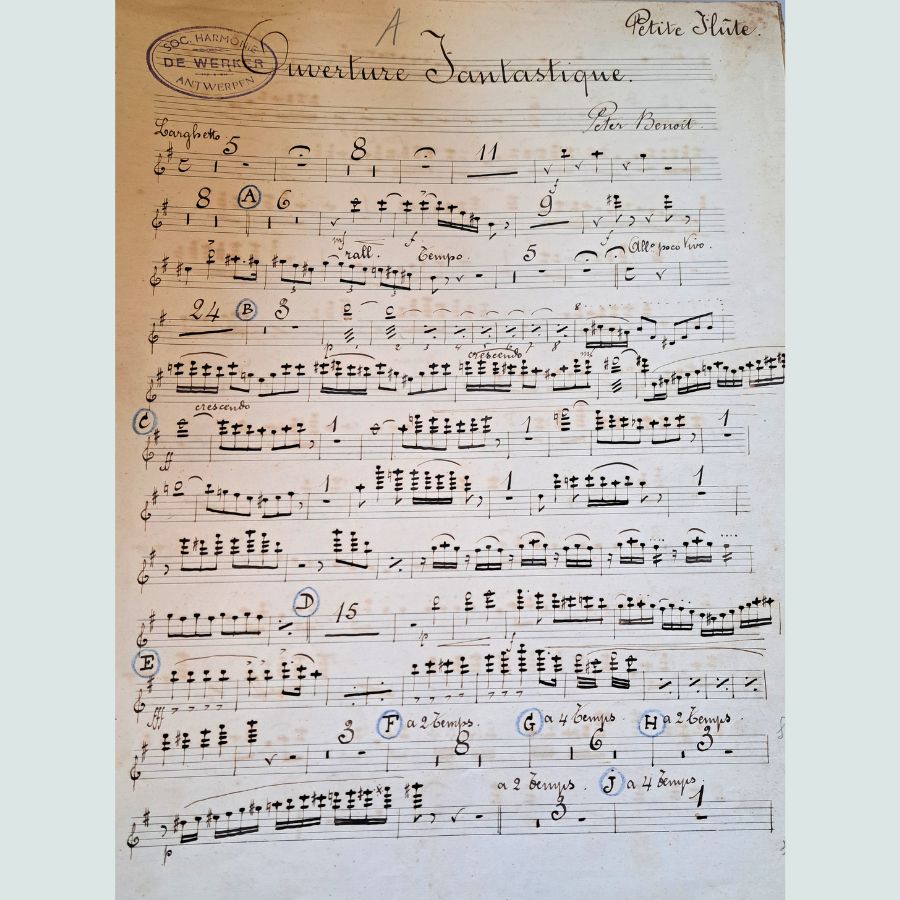 A
Petite Flûte.
SOC. HARMONIE
DE WERKER
ANTWERPEN
Ouverture Fantastique.
Peter Benoit.
Larghetto
5 8 11
f
8 A 6 9
mf f f
rall. Tempo. 5 All° poco Vivo.
3 3
24 B 3 8
p 1 2 3 4 5 6 7 8
crescendo mf
crescendo
C 1 1 1
ff
1 1 1
D 15
p f
E
fff
3 F a 2 Temps. 8 G a 4 Temps. 6 H a 2 Temps. 3
a 2 Temps. 3 J a 4 Temps. 1
p